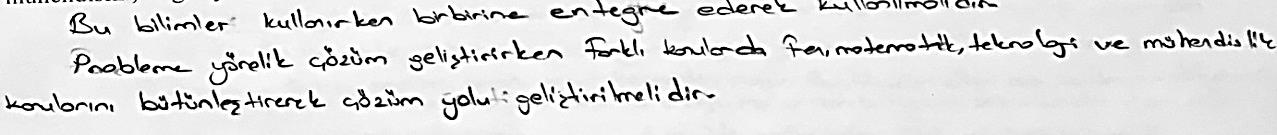 Bu bilimler kullanırken birbirine entegre ederek kullanılmalıdır
Probleme yönelik çözüm geliştirirken farklı konularda fen, matematik, teknoloji ve mühendislik
konularını bütünleştirerek çözüm yolu geliştirilmelidir.